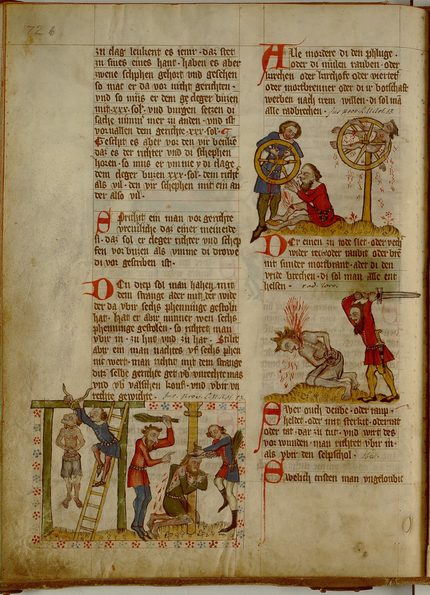 72 b
zu clag leukent es iemr · daz stet
zu sines eines hant · haben es aber
zwene schphen gehort vnd gesehen
so mac er da vor nicht gerichten ·
vnd so mus er dem cleger buzen
mit · xxx · sol · vnd burgen setzen di
sache nimmer mer zu anden · vnd ist
voruallen dem gerichte · xxx · sol ·
Geschit es aber vor den vir benke
daz es der richter vnd di schephen
horen · so mus er vmme di clage
dem cleger buzen xxx · sol · dem richt
als vil · den vir schephen mit ein an
der also vil ·
Spricht ein man vor gerichte
vreueliche daz einer meineide
si · daz sol er cleger richter vnd schep
fen vor buzen als vmme di drowe
di vor geschriben ist ·
Den diep sol man hahen mit
dem strange ader mit der wide
der da vbir sechs phenninge gestoln
hat · Hat er abir minner wen sechs
phenninge gestolen · so richtet man
vbir in · zu hut vnd zu har · Stilet
abir ein man nachtes vf sechs phen
nic wert · man richtet mit dem strange
ditz selbe gerichte get vf vnrechte mas
vnd vf valschen kouf · vnd vbir vn
rechte gewichte ·
Alle mordere di den phluge ·
oder di mulen rauben · oder
kirchen oder kirchofe oder vierteter
oder mortbrenner oder di ir botschaft
werben nach irem willen · di sol man
alle radbrechen ·
Der einen zu tode slet · oder vech
wider recht · oder raubit oder bre
nit sunder mortbrant · ader di den
vride brichen · di sol man alle ent
helsen ·
Swer ouch deube · oder raup ·
heldet · oder mit sterkit · oder rat
oder tat dar zu tut · vnd wirt des
vor wunden · man richtet vbir in ·
als vbir den selpschol ·
Swelich cristen man vngeloubic